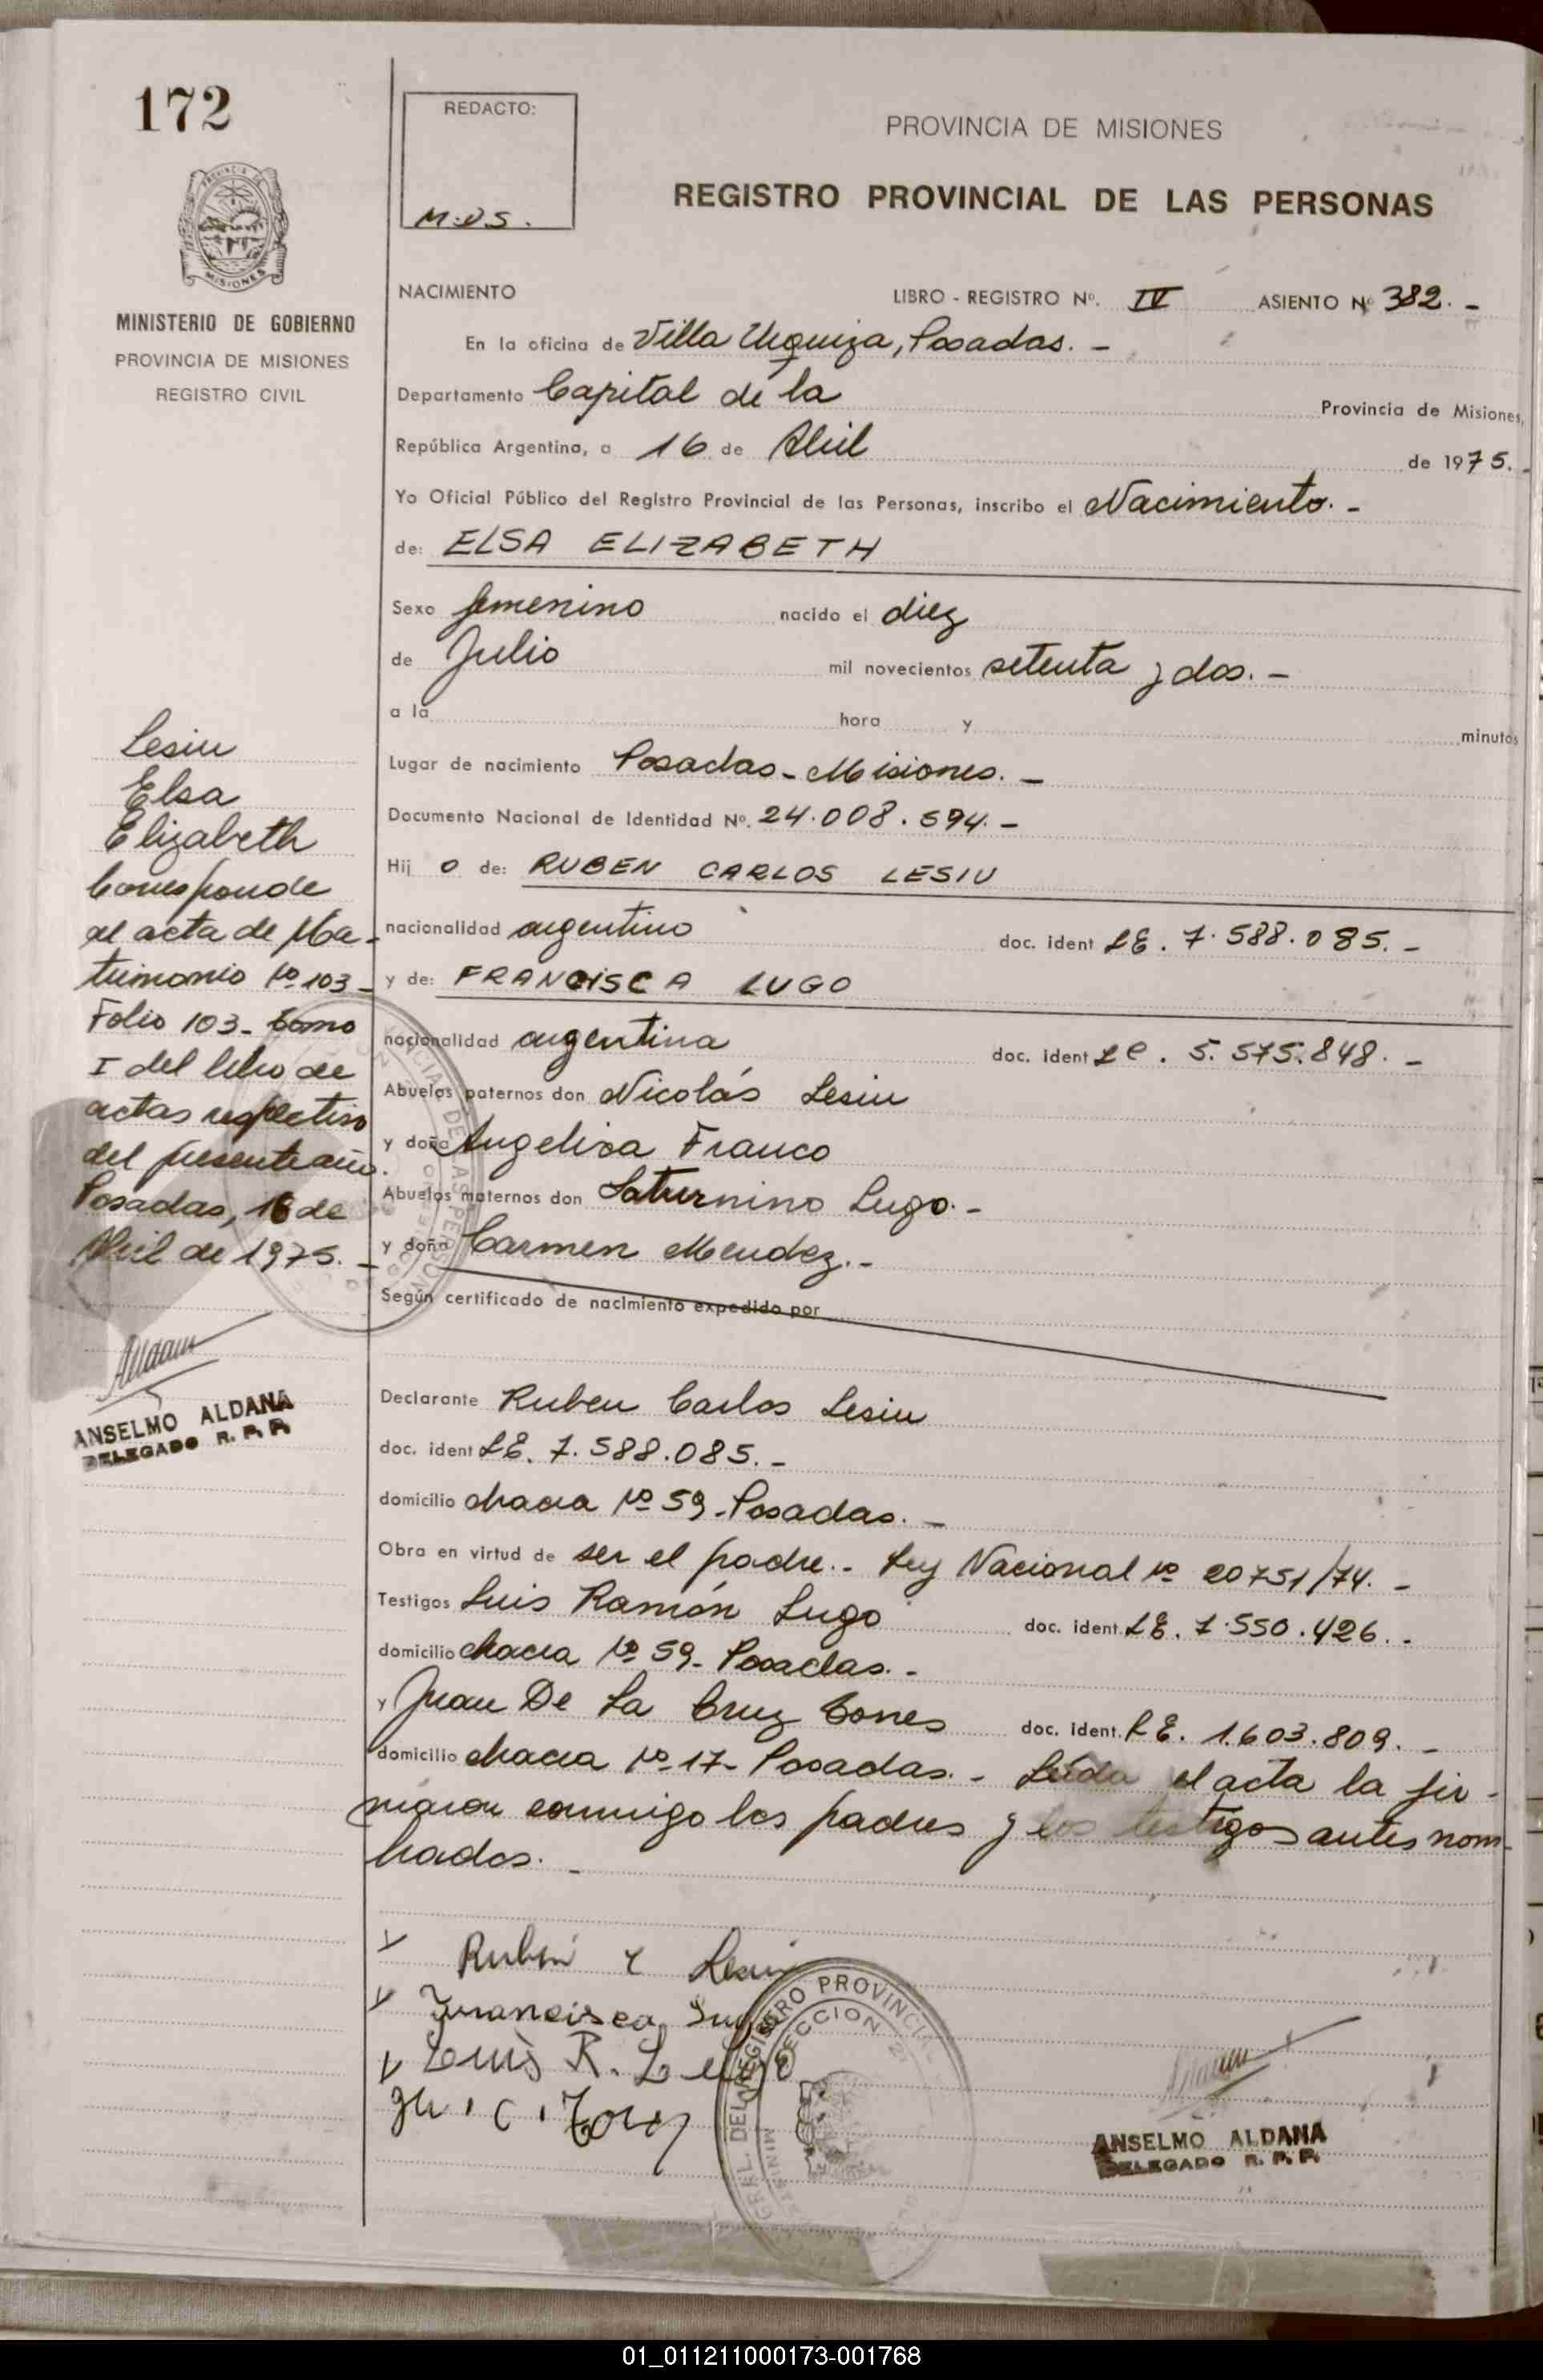 172
REDACTO:
M.D.S.
PROVINCIA DE MISIONES
REGISTRO PROVINCIAL DE LAS PERSONAS
PROVINCIA DE
MISIONES
MINISTERIO DE GOBIERNO
PROVINCIA DE MISIONES
REGISTRO CIVIL
NACIMIENTO LIBRO - REGISTRO Nº. IV ASIENTO Nº 382. -
En la oficina de Villa Urquiza, Posadas. -
Departamento Capital de la Provincia de Misiones,
República Argentina, a 16 de Abril de 1975. -
Yo Oficial Público del Registro Provincial de las Personas, inscribo el Nacimiento. -
de: ELSA ELIZABETH
Sexo femenino nacido el diez
de Julio mil novecientos setenta y dos. -
a la hora y minutos
Lugar de nacimiento Posadas - Misiones. -
Documento Nacional de Identidad Nº. 24.008.594. -
Hij o de: RUBEN CARLOS LESIU
nacionalidad argentino doc. ident LE. 7.588.085. -
y de: FRANCISCA LUGO
nacionalidad argentina doc. ident LC. 5.575.848. -
Abuelos paternos don Nicolás Lesiu
y doña Angelica Franco
Abuelos maternos don Saturnino Lugo. -
y doña Carmen Mendez. -
Según certificado de nacimiento expedido por
Lesiu
Elsa
Elizabeth
Corresponde
al acta de Ma-
trimonio Nº 103 -
Folio 103 - tomo
I del libro de
actas respectivo
del presente año.
Posadas, 16 de
Abril de 1975. -
ANSELMO ALDANA
DELEGADO R. P. P.
Declarante Ruben Carlos Lesiu
doc. ident LE. 7.588.085. -
domicilio chacra Nº 59 - Posadas. -
Obra en virtud de ser el padre. - Ley Nacional Nº 20751/74. -
Testigos Luis Ramón Lugo doc. ident. LE. 7.550.426. -
domicilio chacra Nº 59 - Posadas. -
y Juan De La Cruz doc. ident. LE. 1.603.809. -
domicilio chacra Nº 17 - Posadas. - Leída el acta la fir-
maron conmigo los padres y los testigos antes nom-
brados. -
Rubén Lesiu
Francisca Lugo
Luis R. Lugo
REGISTRO PROVINCIAL
GRAL. DEL
ANSELMO ALDANA
DELEGADO R. P. P.
01_011211000173-001768